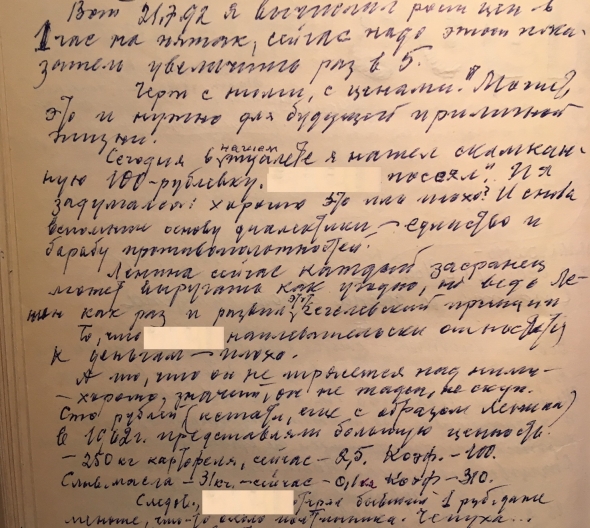 Вот 21.7.92 я вычислил рост цен в
1 час на пятак, сейчас надо этот пока-
затель увеличить раз в 5.
Черт с ними, с ценами. Может,
это и нужно для будущей приличной
жизни.
Сегодня в нашем туалете я нашел скомкан-
ную 100-рублевку. посеял". И я
задумался: хорошо это или плохо? И снова
вспомнил основу диалектики – единство и
борьбу противоположностей.
Ленина сейчас каждый засранец
может выругать как угодно, но ведь Ле-
нин как раз и развил этот гегелевский принцип
То, что наплевательски относится
к деньгам – плохо.
А то, что он не трясется над ними –
– хорошо, значит, он не жаден, не скуп.
Сто рублей (кстати, еще с образом Ленина)
в 1962г. представляли большую ценность.
– 250 кг картофеля, сейчас – 2,5. Коэф. – 100.
Слив. масла – 31кг. – сейчас – 0,1кг Коэф – 310.
Следов, бывший 1 рубль даже
меньше, что-то около полтинника. Чепуха...